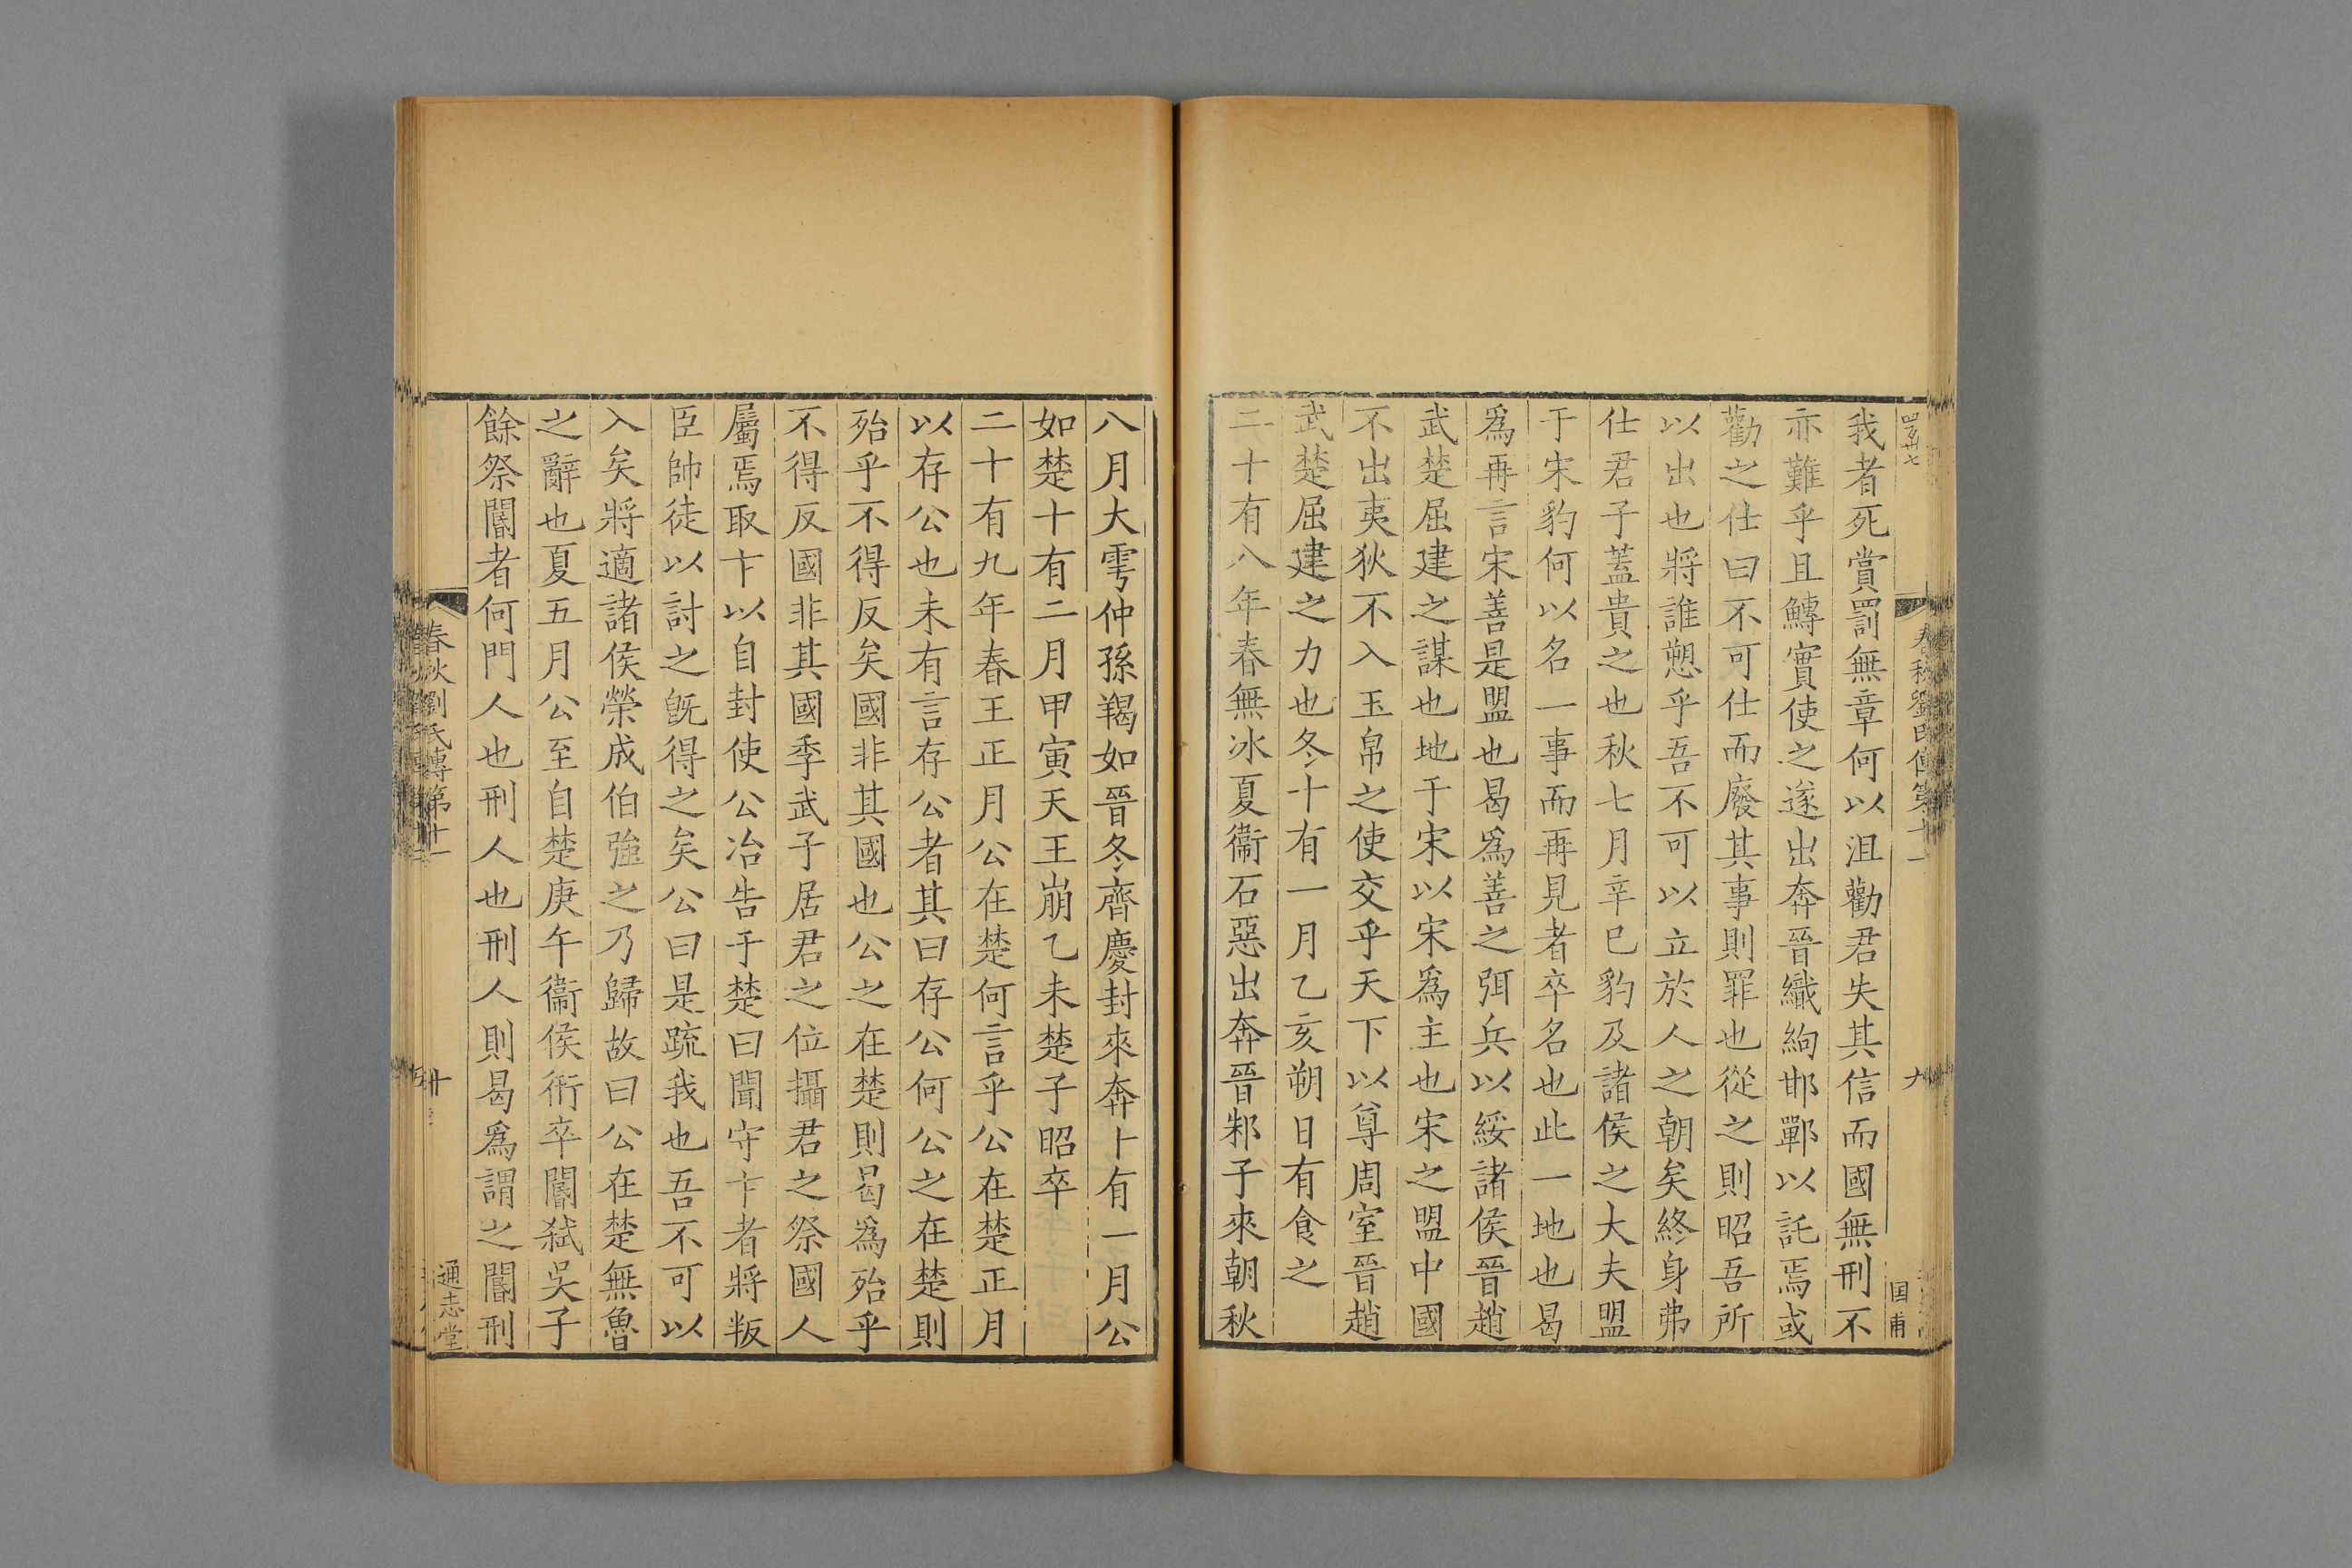 我者死賞罰無章何以沮勸君失其信而國無刑不
亦難乎且鱄實使之遂出奔晉織絢邯鄲以託焉或
勸之仕曰不可仕而廢其事則罪也從之則昭吾所
以出也將誰愬乎吾不可以立於人之朝矣終身弗
仕君子蓋貴之也秋七月辛巳豹及諸侯之大夫盟
于宋豹何以名一事而再見者卒名也此一地也曷
爲再言宋善是盟也曷爲善之弭兵以綏諸侯晉趙
武楚屈建之謀也地于宋以宋爲主也宋之盟中國
不出夷狄不入玉帛之使交乎天下以尊周室晉趙
武楚屈建之力也冬十有一月乙亥朔日有食之
二十有八年春無冰夏衞石惡出奔晉邾子來朝秋
八月大雩仲孫羯如晉冬齊慶封來奔十有一月公
如楚十有二月甲寅天王崩乙未楚子昭卒
二十有九年春王正月公在楚何言乎公在楚正月
以存公也未有言存公者其曰存公何公之在楚則
殆乎不得反矣國非其國也公之在楚則曷爲殆乎
不得反國非其國季武子居君之位攝君之祭國人
屬焉取卞以自封使公冶告于楚曰聞守卞者將叛
臣帥徒以討之旣得之矣公曰是疏我也吾不可以
入矣將適諸侯榮成伯強之乃歸故曰公在楚無魯
之辭也夏五月公至自楚庚午衞侯衎卒閽弑吳子
餘祭閽者何門人也刑人也刑人則曷爲謂之閽刑
春秋劉氏傳第十一
十
通志堂